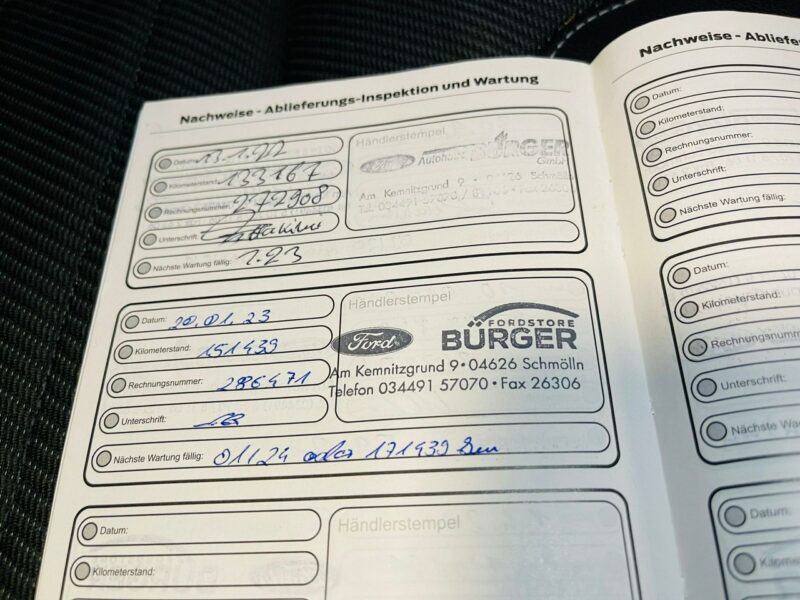 Nachweise - Ablieferungs-Inspektion und Wartung
Datum: 13.1.22
Kilometerstand: 133767
Rechnungsnummer: 272908
Unterschrift:
Nächste Wartung fällig: 1.23
Händlerstempel
Ford Autohaus BÜRGER
GmbH
Am Kemnitzgrund 9 • 04626 Schmölln
Datum: 20.01.23
Kilometerstand: 151439
Rechnungsnummer: 286471
Unterschrift:
Nächste Wartung fällig: 01/24 oder 171439 km
Händlerstempel
Ford
FORDSTORE
BÜRGER
Am Kemnitzgrund 9 • 04626 Schmölln
Telefon 034491 57070 • Fax 26306
Datum:
Kilometerstand:
Händlerstempel
Nachweise - Abliefe
Datum:
Kilometerstand:
Rechnungsnummer:
Unterschrift:
Nächste Wartung fällig:
Datum:
Kilometerstand:
Rechnungsnummer:
Unterschrift:
Nächste Wa
Datum:
Kilome